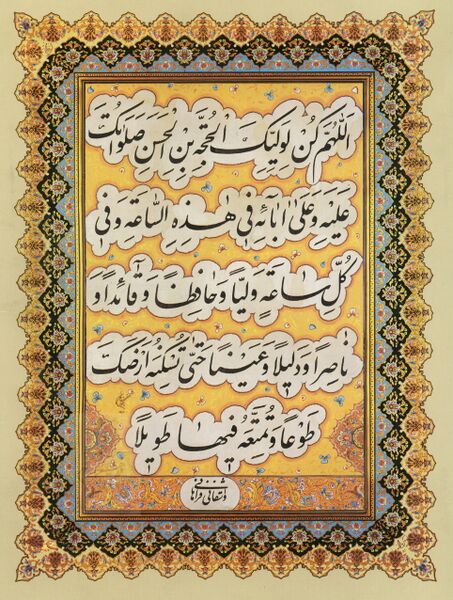 اللّهُمَّ كُن لِوَلِيِّكَ الحُجَّةِ بنِ الحَسَنِ صَلَواتُكَ
عَلَيهِ وَ عَلى ابائِهِ في هذِهِ السّاعَةِ وَ في
كُلِّ ساعَةٍ وَلِيّاً وَ حافِظاً وَ قائِداً وَ
ناصِراً وَ دَليلاً وَ عَيناً حَتّى تُسكِنَهُ اَرضَكَ
طَوعاً وَ تُمَتِّعَهُ فيها طَويلاً